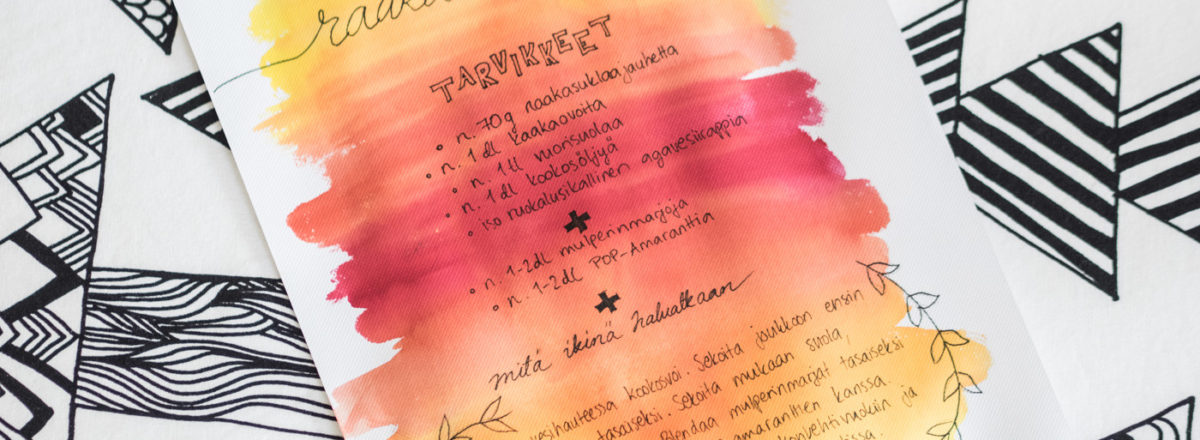 TARVIKKEET
• n. 70g raakasuklaajauhetta
• n. 1 dl kaakaovoita
• n. 1 tl vuorisuolaa
• n. 1 dl kookosöljyä
• iso ruokalusikallinen agavesiirappia
+
• n. 1-2dl mulperinmarjoja
• n. 1-2dl POP-Amaranttia
+
mitä ikinä haluatkaan
vesihauteessa kookosvoi. Sekoita joukkoon ensin
tasaiseksi. Sekoita mukaan suola,
Blendaa mulperinmarjat tasaiseksi
amaranttien kanssa.
konvehtivuokiin ja